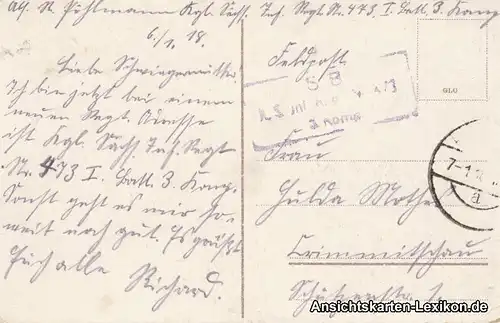 Abs. R. Pöhlmann Kgl. Sächs. Inf. Regt. Nr. 473 I. Batl. 3. Komp.
6./1. 18.
Liebe Schwiegermutter!
Ich bin jetzt bei einem
neuen Regt. Adresse
ist Kgl. Sächs. Inf. Regt.
Nr. 473 I. Batl. 3. Komp.
Sonst geht es mir so-
weit noch gut. Es grüßt
Euch alle Richard.
Feldpost
S B
473
3 Komp
GLO
7-1.
a
Frau
Hulda
Crimmitschau
Ansichtskarten-Lexikon.de